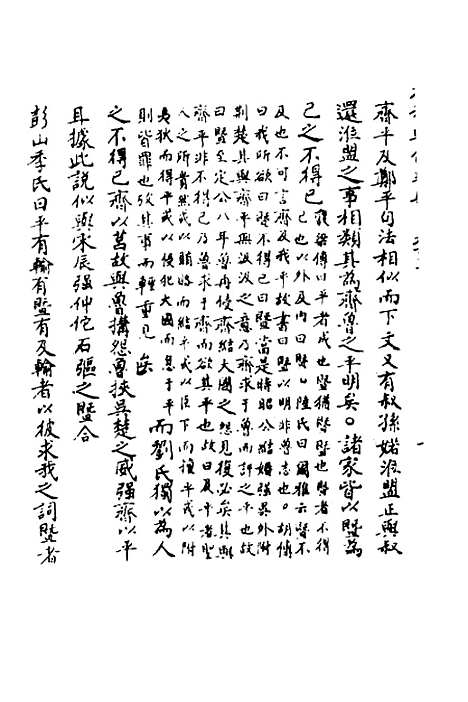 齊平及鄭平句法相似而下文又有叔孫婼涖盟正與叔
還涖盟之事相類其為齊魯之平明矣。諸家皆以暨為
己之不得已
穀梁傳曰平者成也暨猶暨暨也暨者不得
已也以外及內曰暨。陸氏曰爾雅云暨不
及也不可言齊及我平故書曰暨以明非魯志也。胡傳
曰我所欲曰及不得已曰暨當是時昭公結婚強吳外附
荊楚其與齊平無汲汲之意乃齊求于魯而許之平也故
曰暨至定公八年魯再侵齊結大國之怨見復必矣其與
齊平非不得已乃魯求于齊而欲其平也故曰及平者聖
人之所貴然或以賄賂而結平或以臣下而擅平或以附
夷狄而得平或以侵犯大國而急于平
則皆罪也攷其事而輕重見矣
而劉氏獨以為人
之不得已齊以莒故與魯搆怨魯挾吳楚之威強齊以平
耳據此說似與宋辰强仲佗石彄之暨合
彭山季氏曰平有輸有暨有及輸者以彼求我之詞暨者